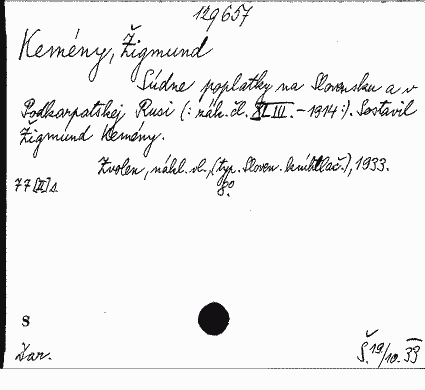 129657
Kemény, Žigmund
Súdne poplatky na Slovensku a v
Podkarpatskej Rusi (: nák. čl. XLIII. – 1914 :). Sostavil
Žigmund Kemény.
Zvolen, nákl. vl., (typ. Sloven. kníhtlač.), 1933.
77 [II] s. 8°.
8
Dar. Š. 19/10. 33